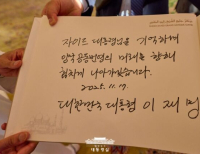 자이드 대통령님을 기억하며
양국 공동번영의 미래를 향해
함께 나아가겠습니다.
2025. 11. 17.
대한민국 대통령 이 재 명
대통령실